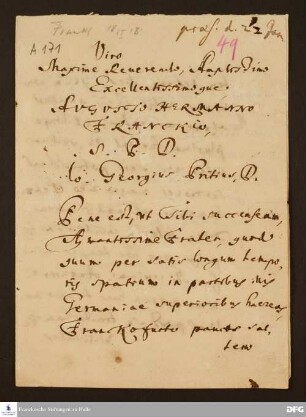 præs. d. 22 Jan
49
A 171
Viro
Maxime Reverendo, Amplissimo
Excellentissimoque
AVGVSTO HERMANNO
FRANCKIO,
S. P. D.
Io. Georgius Pritius, D.
Pene est, ut Tibi succenseam,
Amantissime Frater, quod
quum per satis longum tempo-
ris spatium in partibus his
Germaniae superioribus haereas,
Francofurto paucis sal-
tem
Franckesche Stiftungen zu Halle
DFG